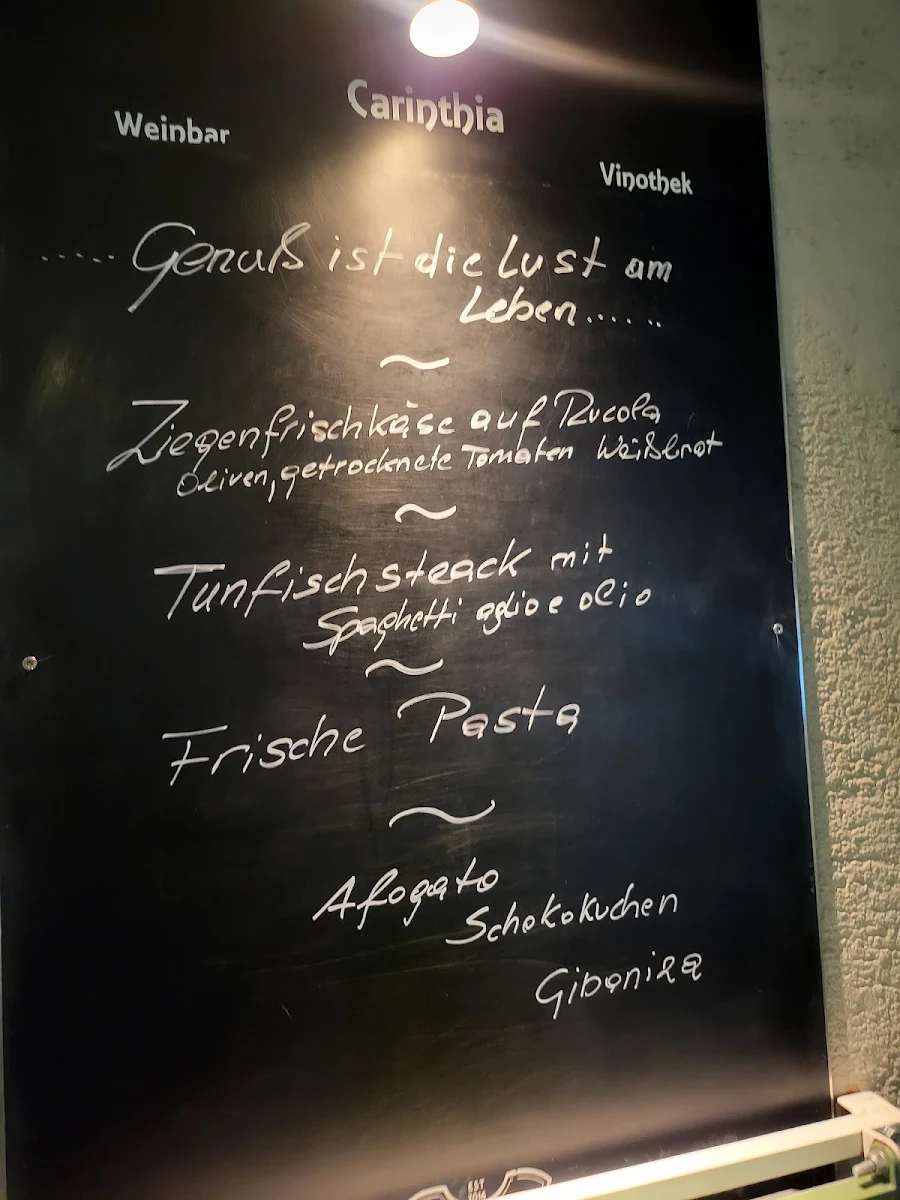 Carinthia
Weinbar
Vinothek
..... Genuß ist die Lust am
Leben.....
~
Ziegenfrischkäse auf Rucola
Oliven, getrocknete Tomaten Weißbrot
~
Tunfischsteack mit
Spaghetti aglio e olio
~
Frische Pasta
~
Afogato
Schokokuchen
Gibaniza
EST
2016